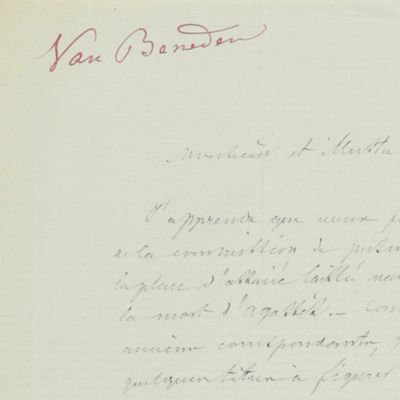 Van Beneden
Monsieur et illustre
J'apprends que vous
de la commission de
la place d'associé laissé
la mort d'Agassiz. — Comm
ancien correspondant,
quelques titres à figurer